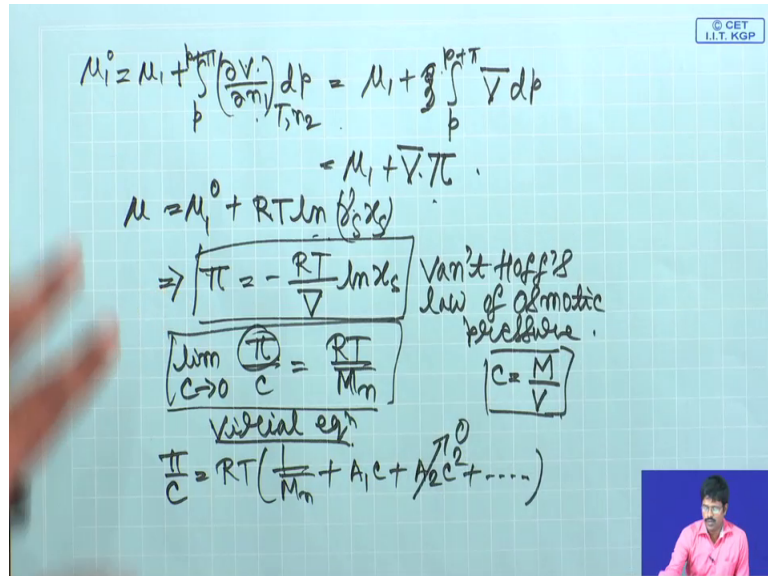 © CET
I.I.T. KGP
μ₁⁰ = μ₁ + ∫ₚᵖ⁺π (∂V/∂n₁)T,n₂ dp = μ₁ + ∫ₚᵖ⁺π V̅ dp
= μ₁ + V̅.π .
μ = μ₁⁰ + RT ln (γₛ xₛ)
⇒ π = - RT/V̅ ln xₛ Van't Hoff's
law of osmotic
pressure .
lim C→0 π/C = RT/Mₙ C = M/V
Virial eqⁿ
π/C = RT(1/Mₙ + A₁C + A₂C² + .....) 0